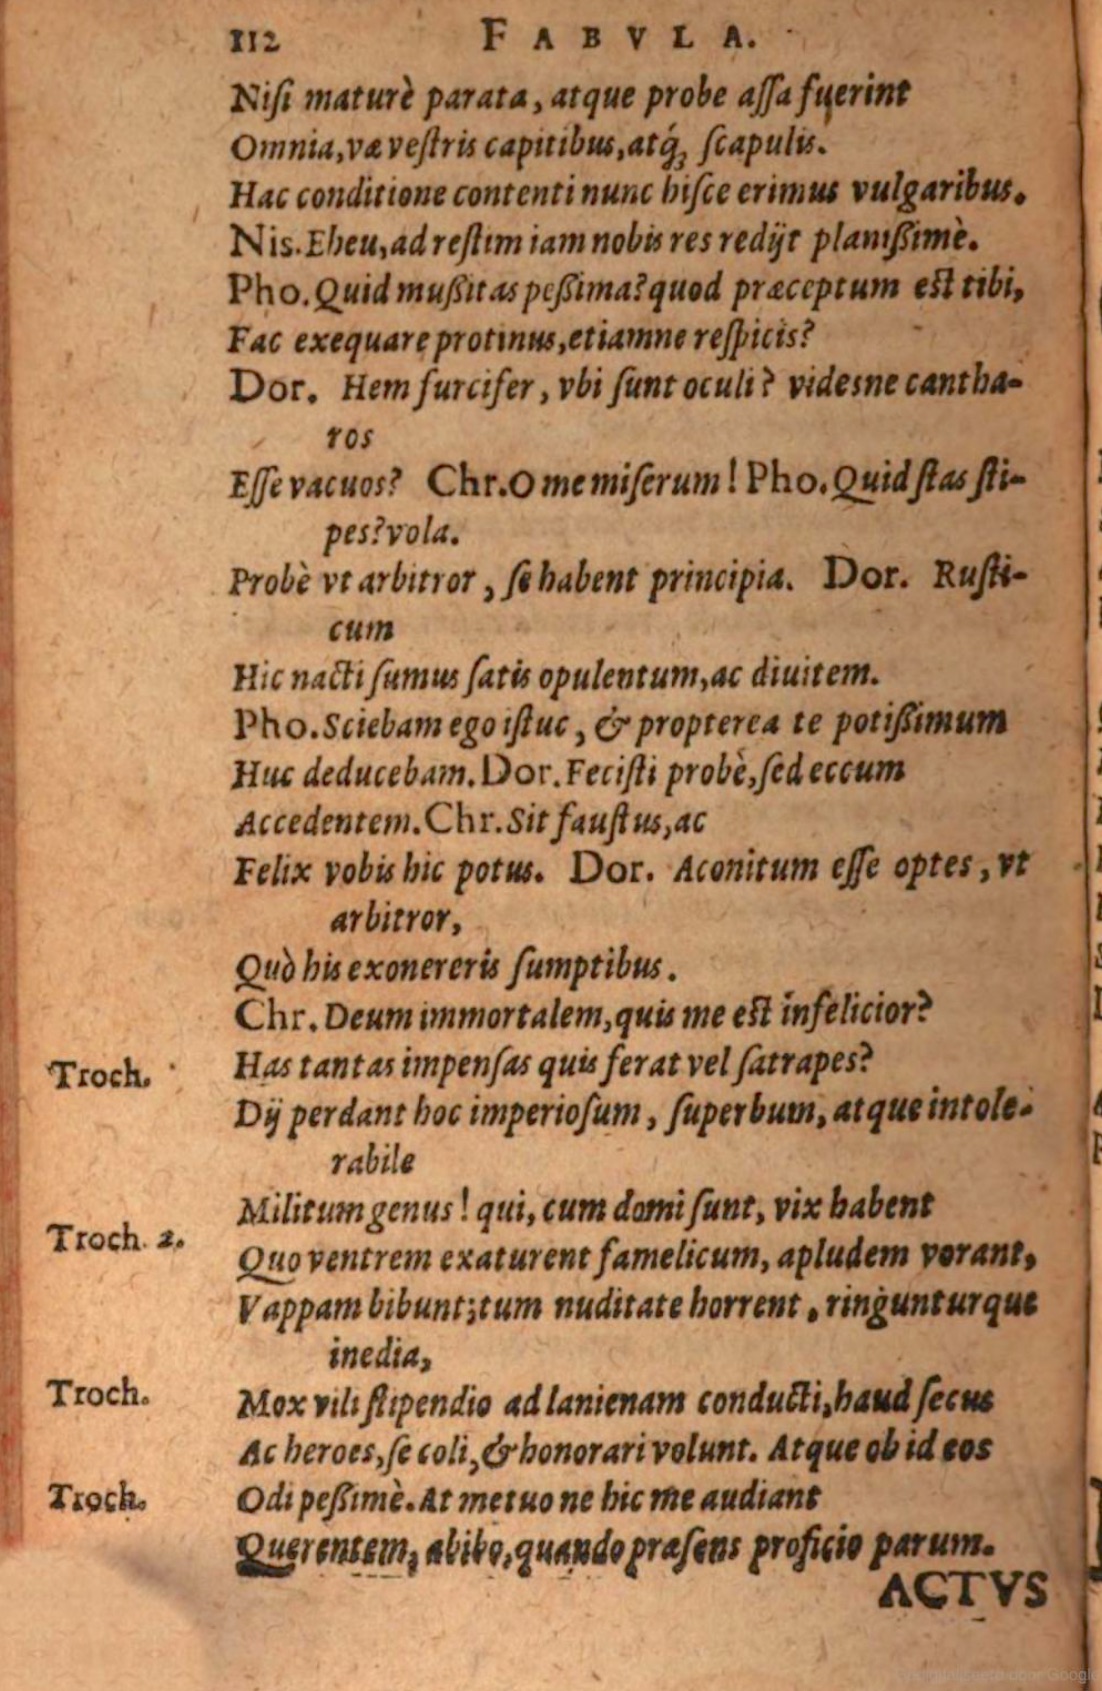 112 FABVLA.
Niſi maturè parata, atque probe aſſa fuerint
Omnia, væ veſtris capitibus, atq́; ſcapulis.
Hac conditione contenti nunc hiſce erimus vulgaribus.
Nis. Eheu, ad reſtim iam nobis res redijt planiſsimè.
Pho. Quid muſsitas peſsima? quod præceptum est tibi,
Fac exequare protinus, etiamne reſpicis?
Dor. Hem furcifer, vbi ſunt oculi? videsne cantha-
ros
Eſſe vacuos? Chr. O me miſerum! Pho. Quid ſtas ſti-
pes? vola.
Probè vt arbitror, ſe habent principia. Dor. Ruſti-
cum
Hic nacti ſumus ſatis opulentum, ac diuitem.
Pho. Sciebam ego iſtuc, & propterea te potiſsimum
Huc deducebam. Dor. Feciſti probè, ſed eccum
Accedentem. Chr. Sit fauſtus, ac
Felix vobis hic potus. Dor. Aconitum eſſe optes, vt
arbitror,
Quò his exonereris ſumptibus.
Chr. Deum immortalem, quis me est infelicior?
Troch. Has tantas impenſas quis ferat vel ſatrapes?
Dij perdant hoc imperioſum, ſuperbum, atque intole-
rabile
Militum genus! qui, cum domi ſunt, vix habent
Troch. 2. Quo ventrem exaturent famelicum, apludem vorant,
Vappam bibunt; tum nuditate horrent, ringunturque
inedia,
Troch. Mox vili ſtipendio ad lanienam conducti, haud ſecus
Ac heroes, ſe coli, & honorari volunt. Atque ob id eos
Troch. Odi peſsimè. At metuo ne hic me audiant
Querentem, abibo, quando præſens proficio parum.
ACTVS